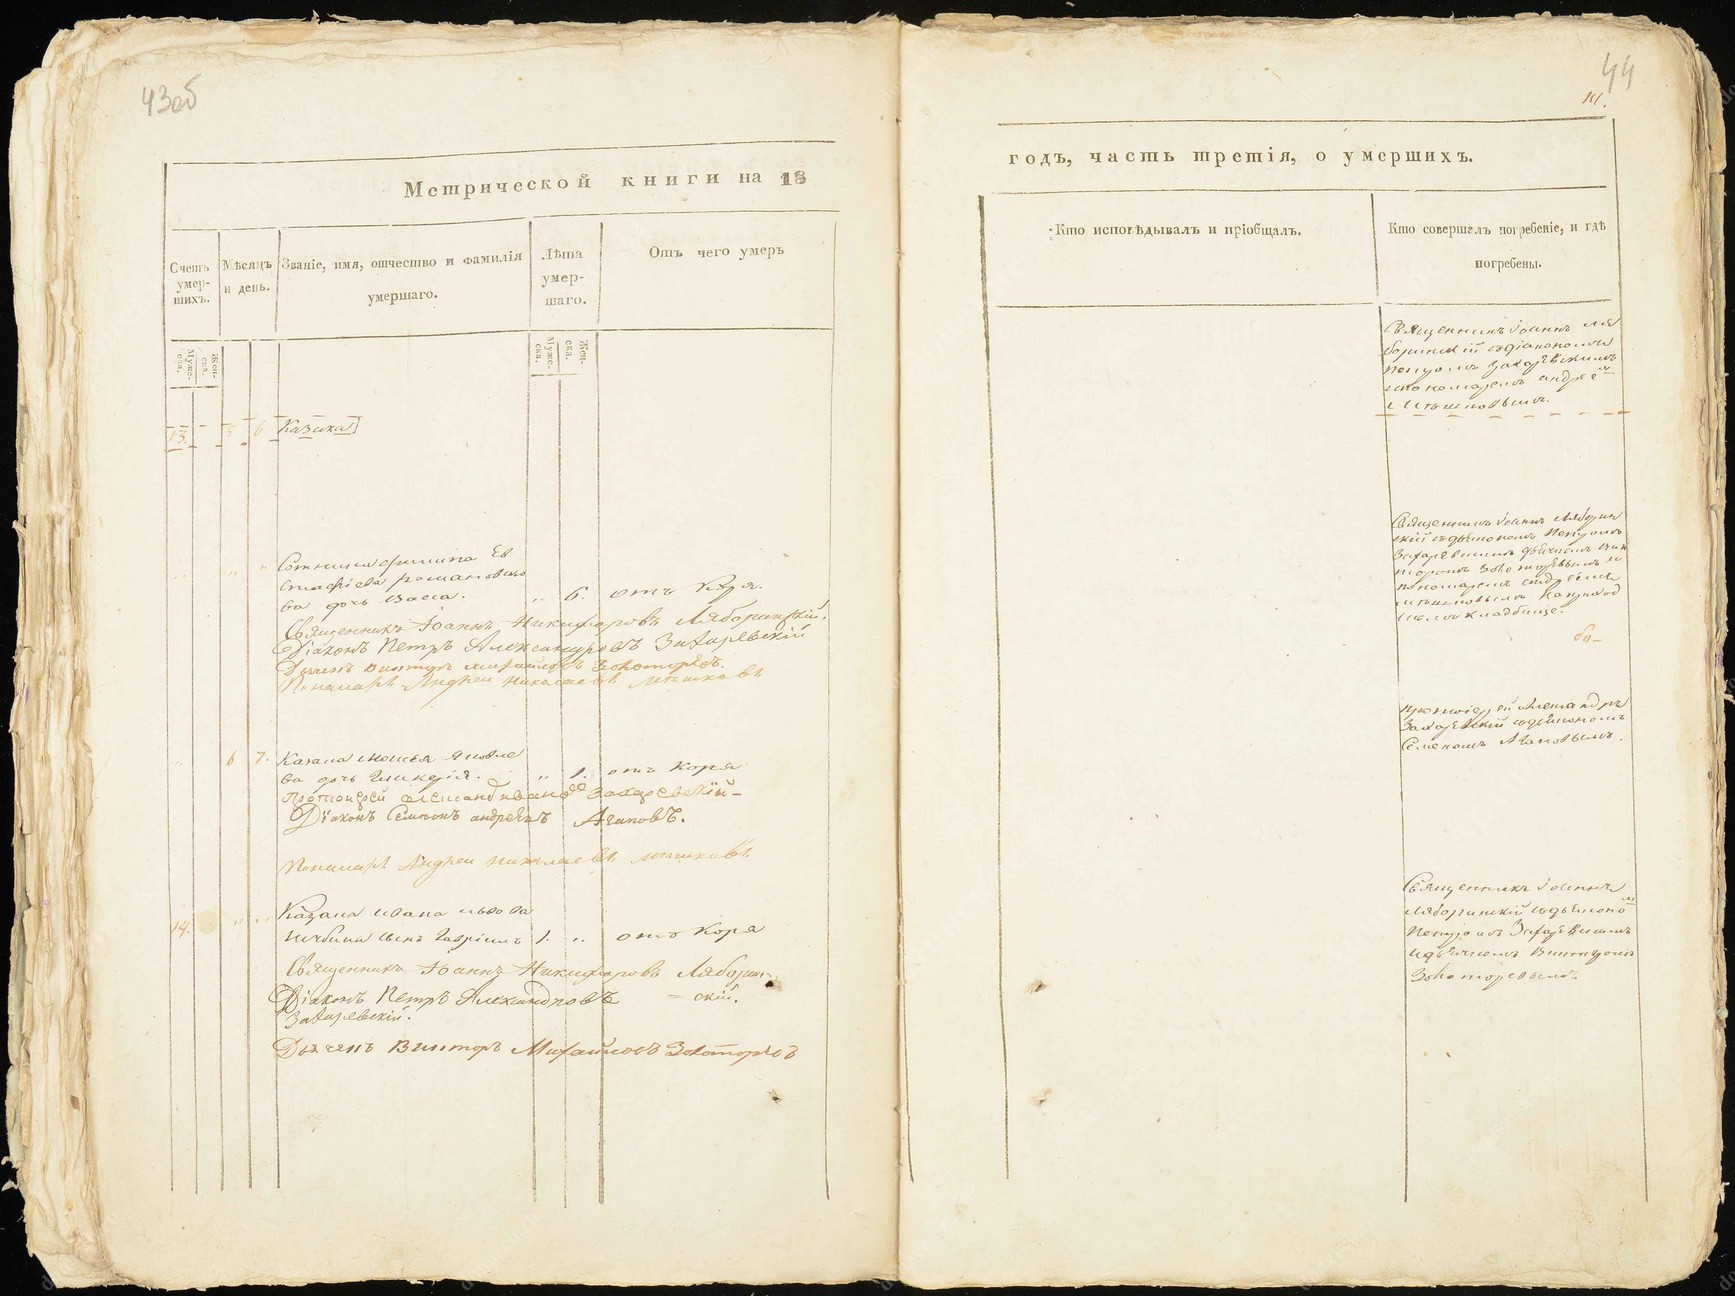 43об
Метрической книги на 18
Счетъ умер-шихъ.
Мѣсяцъ и день.
Званіе, имя, отчество и фамилія умершаго.
Лѣта умер-шаго.
Отъ чего умеръ
Муже-ска.
Жен-ска.
Муже-ска.
Жен-ска.
13. 5 6
ва дочь
6. отъ Коря.
Священникъ Іоаннъ Никифоровъ Ляборинскій.
Діаконъ Петръ Александровъ Захаревскій
Дьячекъ Викторъ Михайловъ Золоторевъ.
Пономарь Андрей Николаевъ Мѣшковъ
6 7. Казака Яковле
ва дочь Гликерія. 1. отъ Коря
Протоіерей Захаревскій
Діаконъ Семіонъ Андреевъ Агаповъ.
Пономарь Андрей Николаевъ Мѣшковъ
14. Казака Ивана Львова
сынъ Гавріилъ 1. отъ Коря
Священникъ Іоаннъ Никифоровъ Ляборин=
Діаконъ Петръ Александровъ =скій.
Захаревскій.
Дьячекъ Викторъ Михайловъ Золоторевъ
44
годъ, часть третія, о умершихъ.
Кто исповѣдывалъ и пріобщалъ.
Кто совершалъ погребеніе, и гдѣ погребены.
Священникъ Іоаннъ Ля
боринскій съ діакономъ
Петромъ Захаревскимъ
и пономаремъ Андреемъ
Мѣшковымъ.
Священникъ ІоаннъЛяборин
скій съ діакономъ Петромъ
Захаревскимъ дьячкомъ Вик
торомъ Золоторевымъ и
пономаремъ Андреемъ
Мѣшковымъ на приход
скомъ кладбище.
Протоіерей Александръ
Захаревскій съ діакономъ
Семеномъ Агаповымъ.
Священникъ Іоаннъ
Ляборинскій съ діакономъ
Петромъ Захаревскимъ
и дьячкомъ Викторомъ
Золоторевымъ